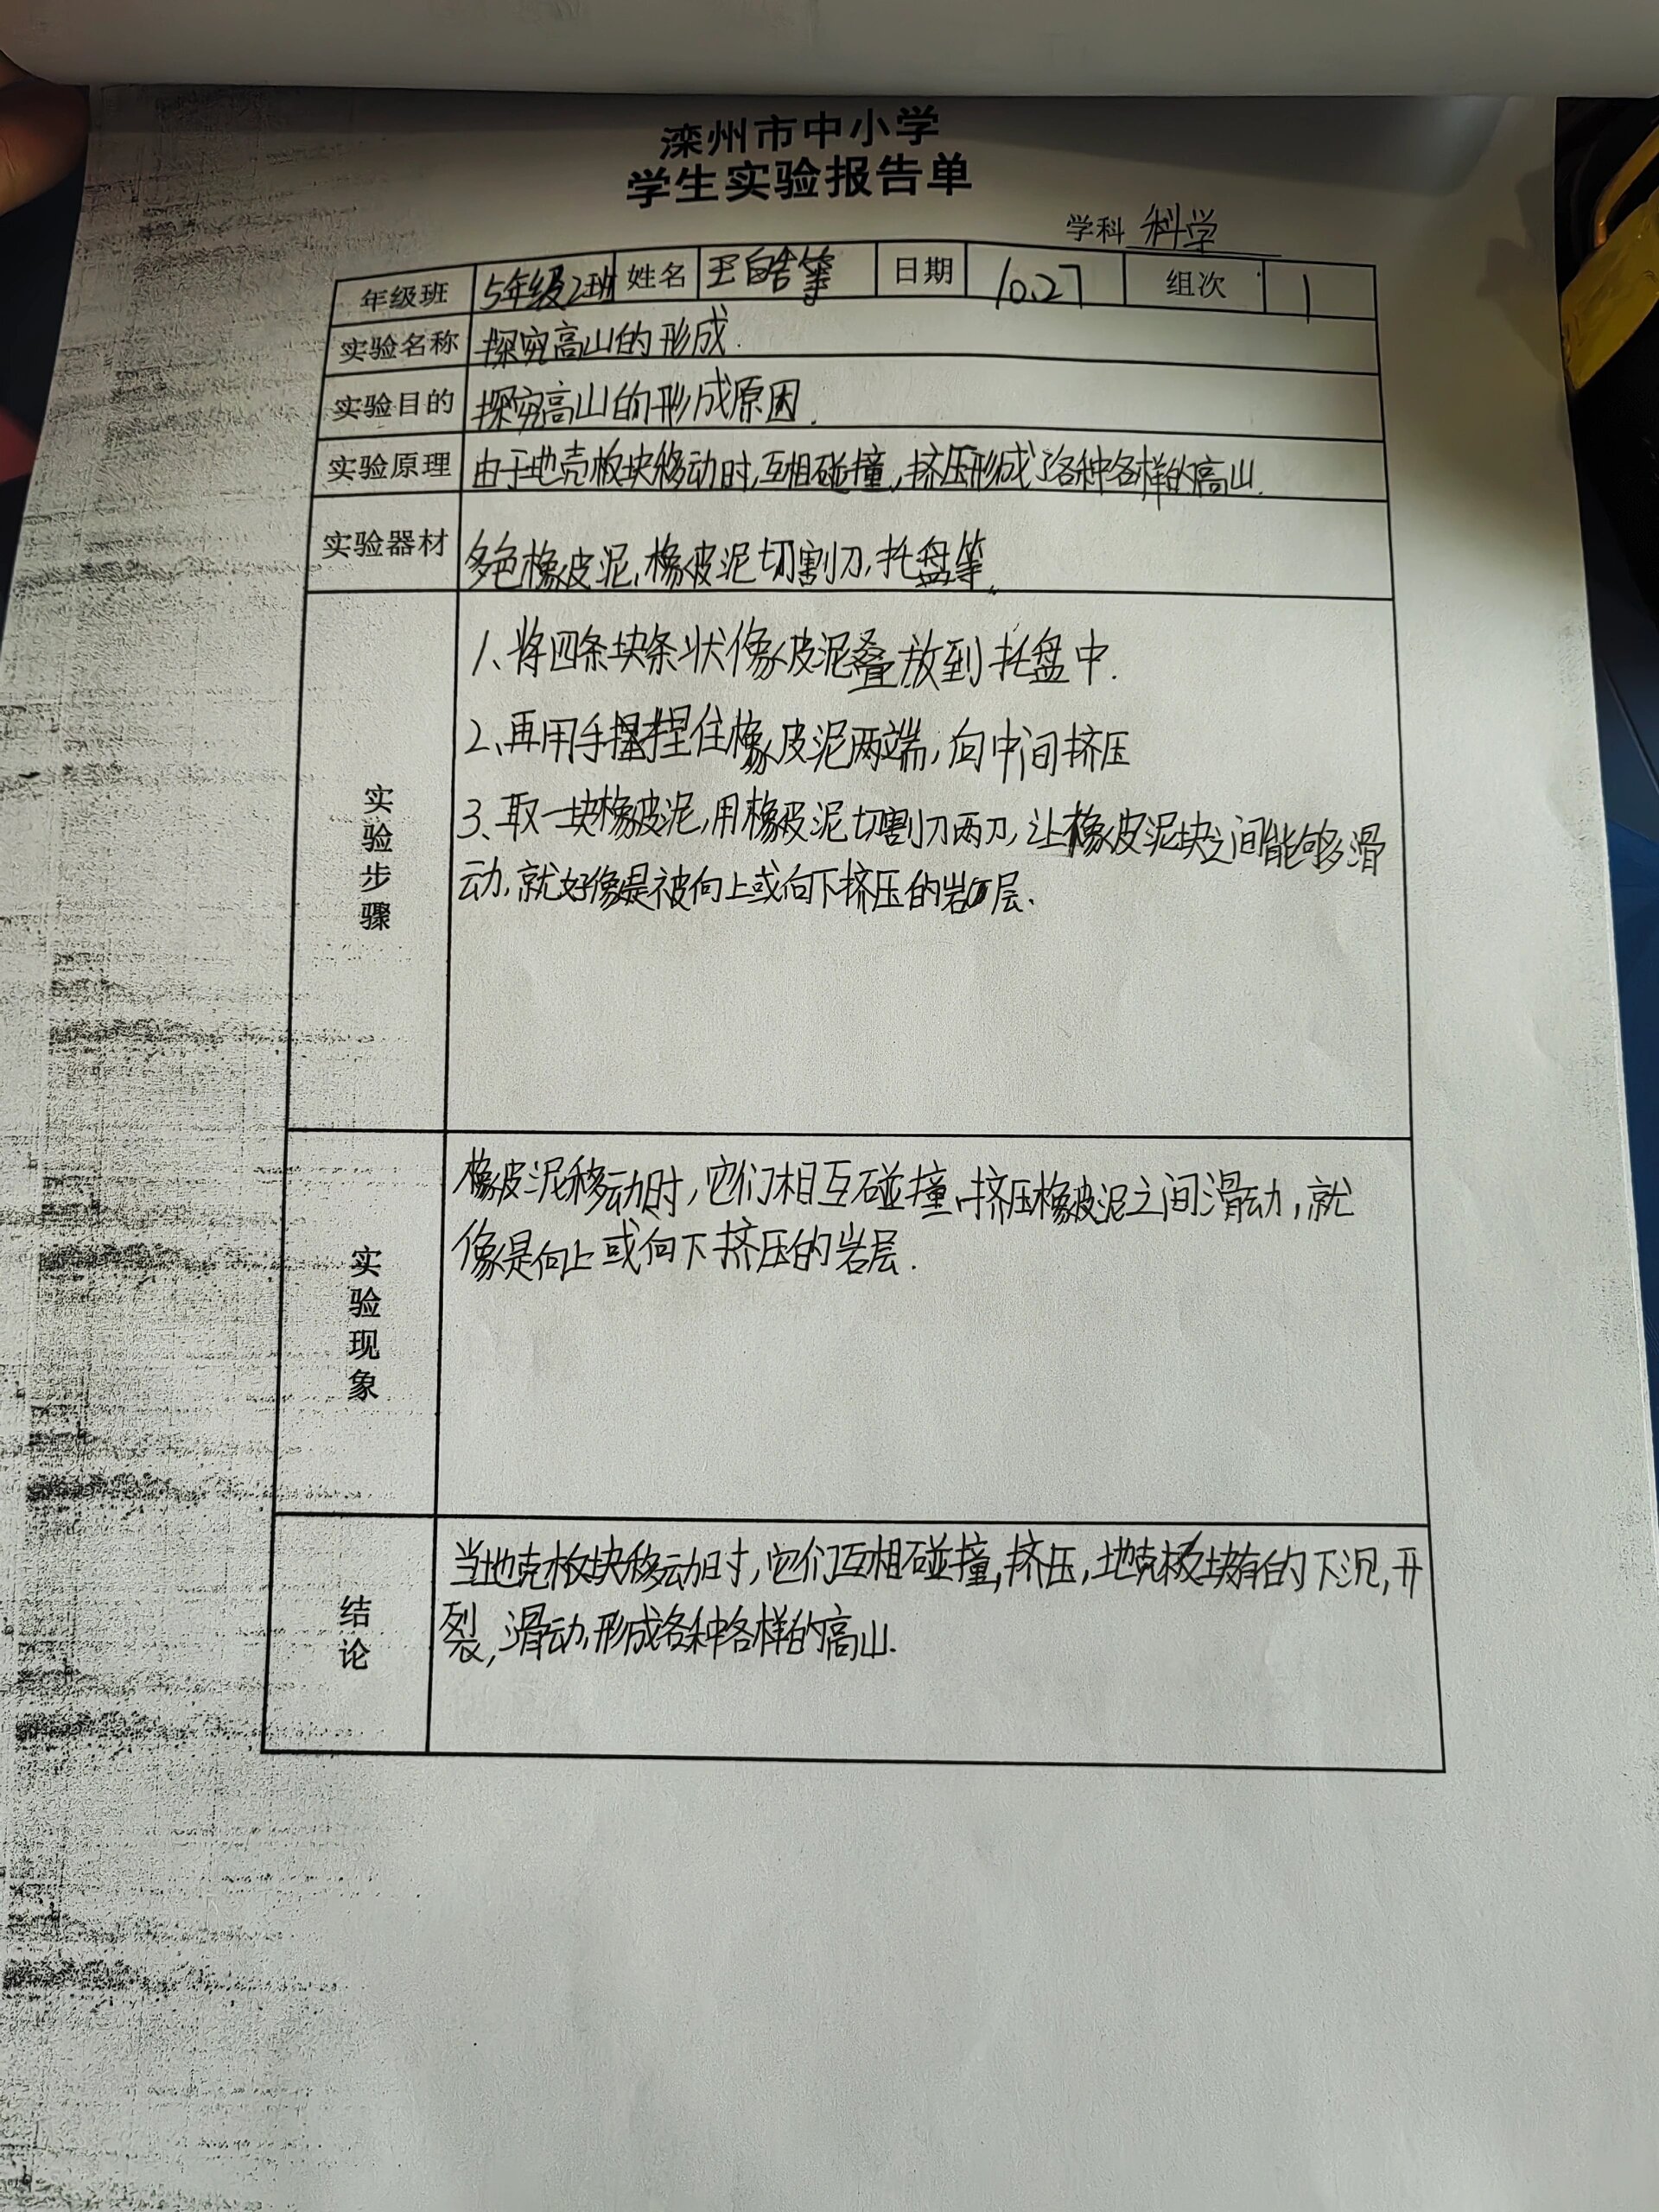 滦州市中小学
学生实验报告单
学科 科学
年级班 5年级2班 姓名 王皓等 日期 10.27 组次 1
实验名称 探究高山的形成.
实验目的 探究高山的形成原因.
实验原理 由于地壳板块移动时,互相碰撞,挤压形成了各种各样的高山.
实验器材 多色橡皮泥,橡皮泥切割刀,托盘等.
实验步骤
1、将四条块条状像皮泥叠放到托盘中.
2、再用手捏住橡皮泥两端,向中间挤压
3、取一块橡皮泥,用橡皮泥切割刀两刀,让橡皮泥块之间能够滑
动,就好像是被向上或向下挤压的岩层.
实验现象
橡皮泥移动时,它们相互碰撞,挤压橡皮泥之间滑动,就
像是向上或向下挤压的岩层.
结论
当地壳板块移动时,它们互相碰撞,挤压,地壳板块有的下沉,开
裂,滑动,形成各种各样的高山.